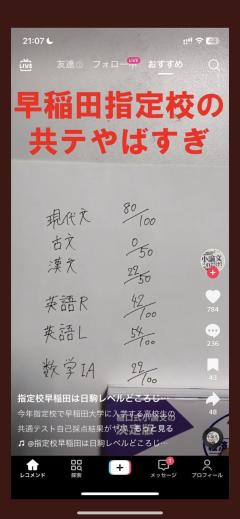 21:07
LIVE
友達
フォロー中
LIVE
おすすめ
早稲田指定校の
共テやばすぎ
現代文 80/100
古文 0/50
漢文 22/50
英語R 42/100
英語L 54/100
数学IA 29/100
小論文
784
236
43
48
指定校早稲田は日駒レベルどころじ…
今年指定校で早稲田大学に入学する高校生の
共通テスト自己採点結果がやば… もっと見る
@指定校早稲田は日駒レベルどころじ…
レコメンド
探索
1
メッセージ
プロフィール